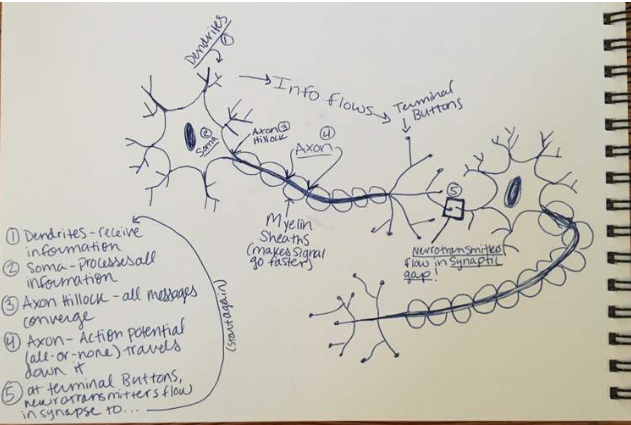 Dendrites
①
→ Info flows →
Terminal
Buttons
②
Soma
Axon ③
Hillock
④
Axon
⑤
Myelin
Sheaths
(makes signal
go faster)
Neurotransmitters
flow in Synaptic
gap!
① Dendrites - receive
information
② Soma - Processes all
information
③ Axon Hillock - all messages
converge
④ Axon - Action potential
(all-or-none) travels
down it
⑤ at terminal Buttons,
neurotransmitters flow
in synapse to...
(start again)